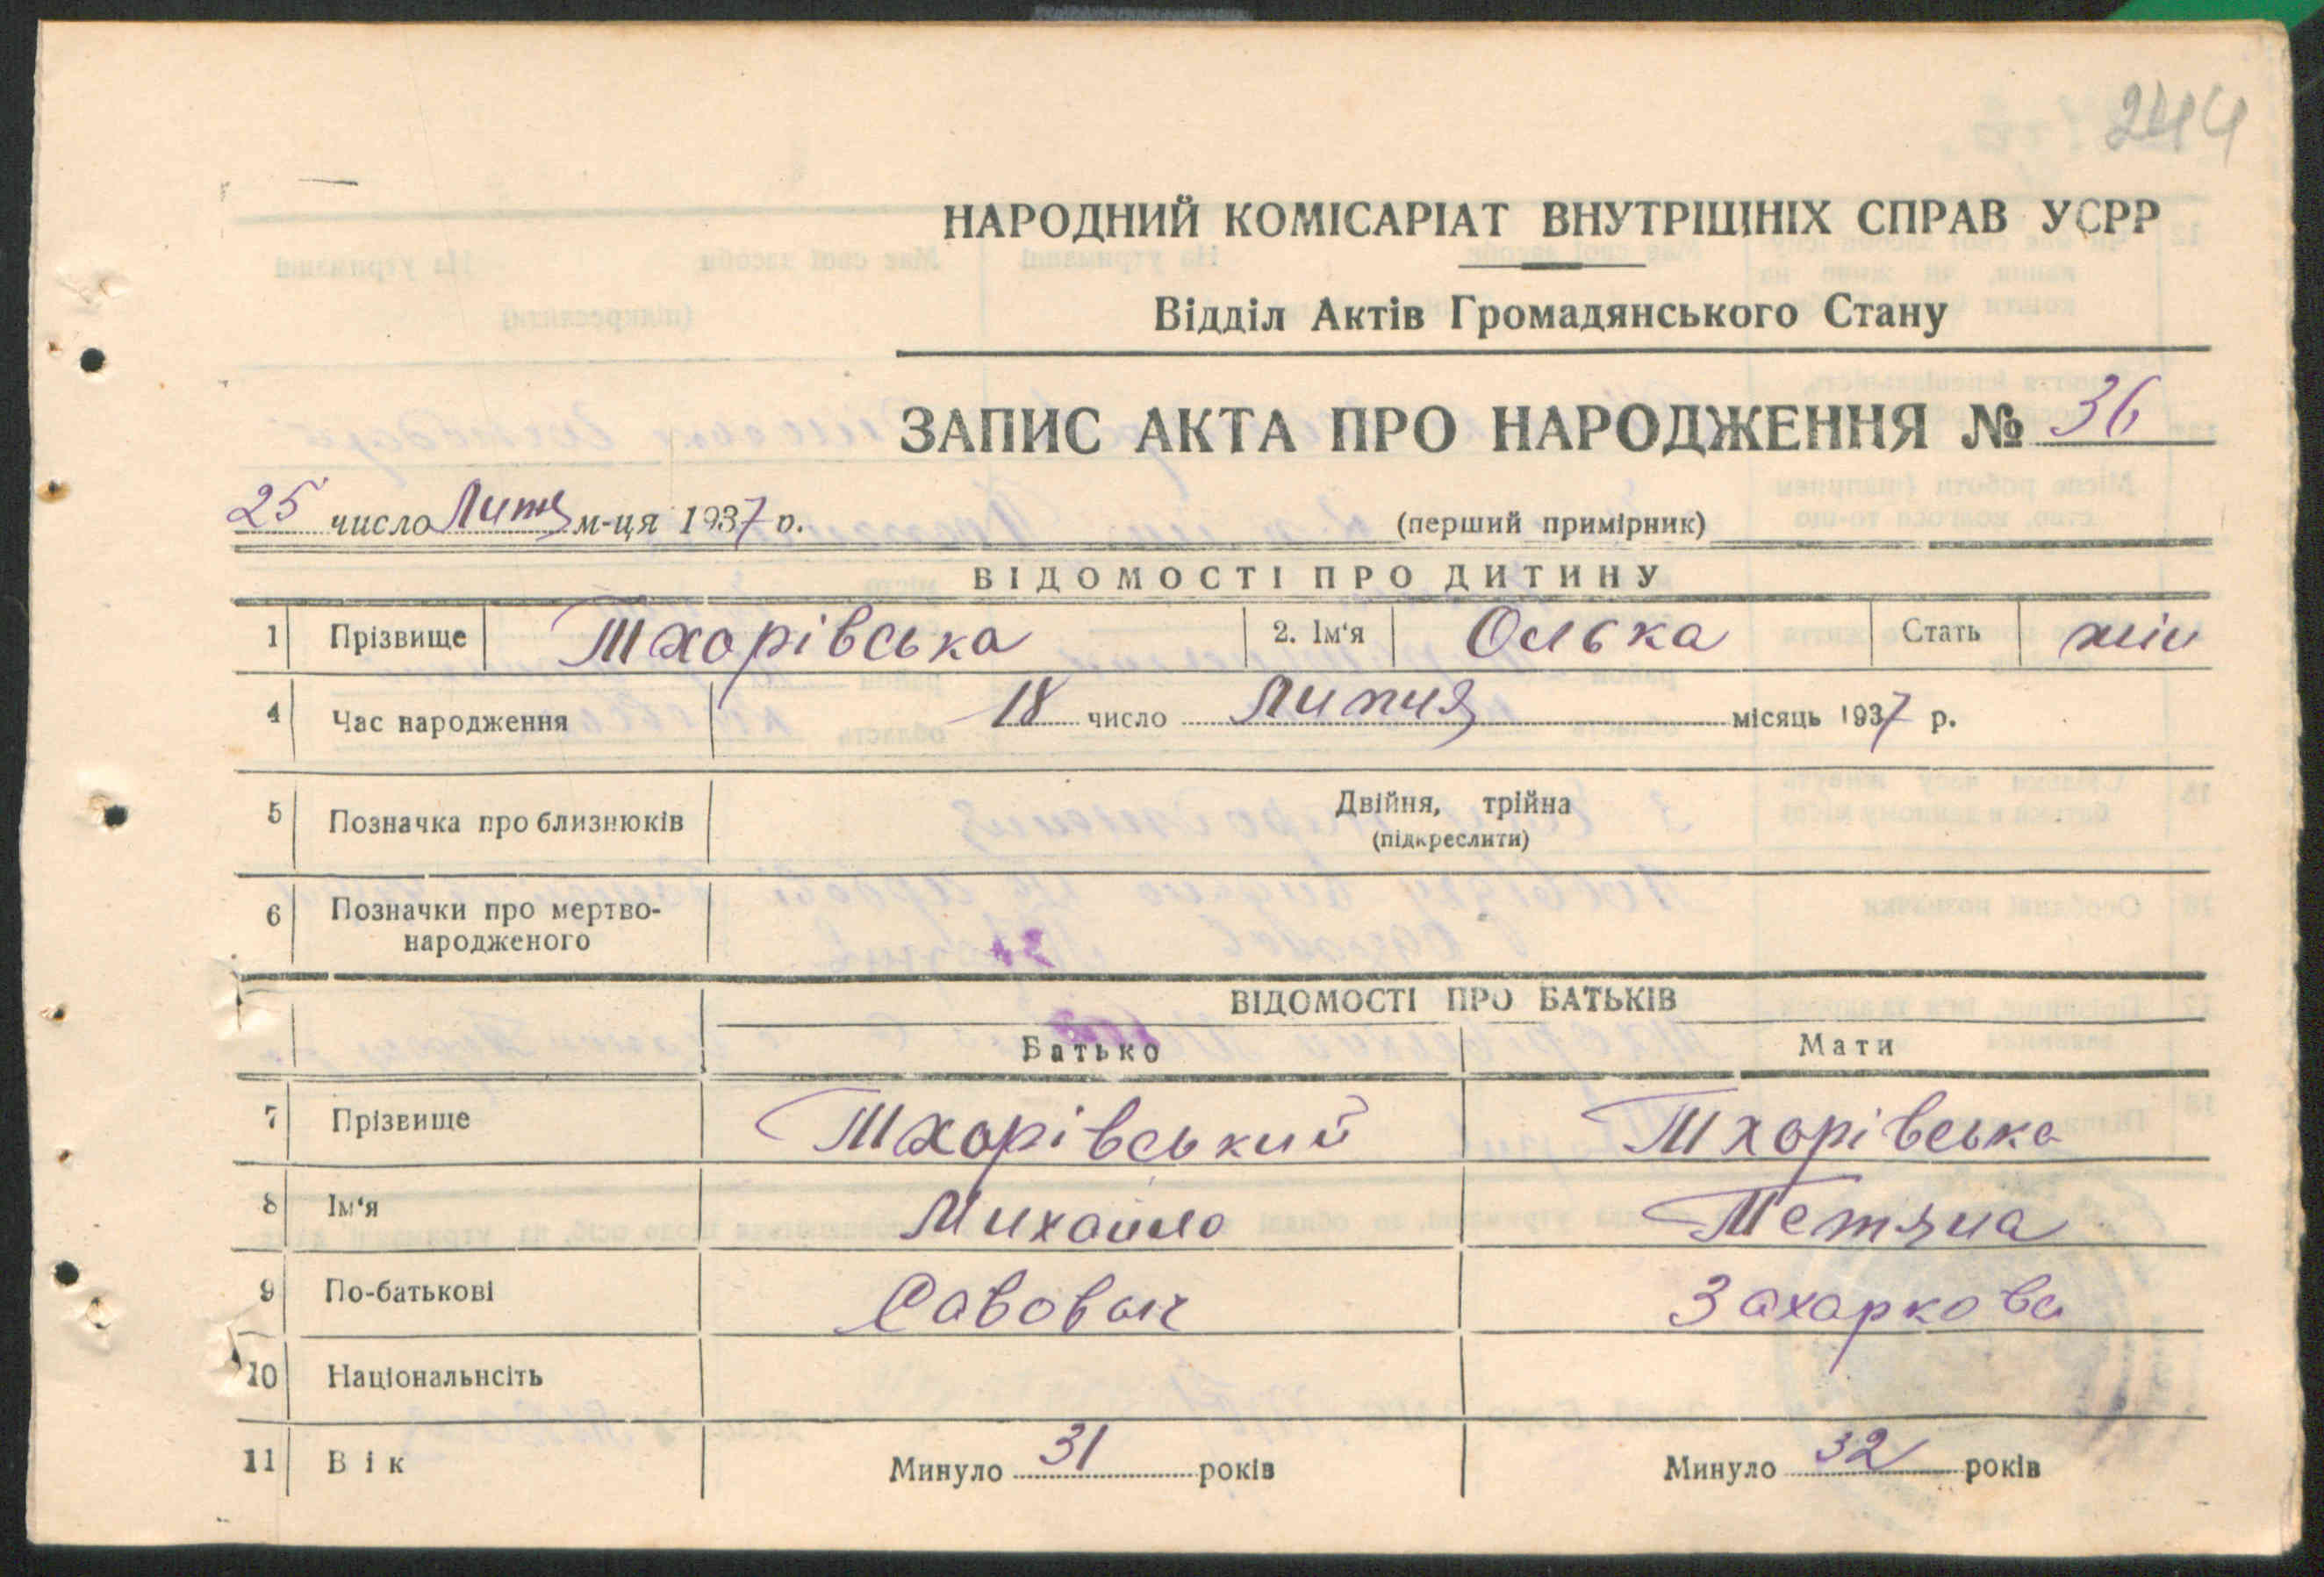 244
НАРОДНИЙ КОМІСАРІАТ ВНУТРІШНІХ СПРАВ УСРР
Відділ Актів Громадянського Стану
ЗАПИС АКТА ПРО НАРОДЖЕННЯ № 36
25 число Липня м-ця 1937 р.
(перший примірник)
ВІДОМОСТІ ПРО ДИТИНУ
1 Прізвище Тхорівська 2. Ім'я Олька Стать жін
4 Час народження 18 число Липня місяць 1937 р.
5 Позначка про близнюків Двійня, трійна
(підкреслити)
6 Позначки про мертво-
народженого
ВІДОМОСТІ ПРО БАТЬКІВ
Батько Мати
7 Прізвище Тхорівський Тхорівська
8 Ім'я Михайло Тетяна
9 По-батькові Савович Захаркова
10 Національнсіть
11 Вік Минуло 31 років Минуло 32 років